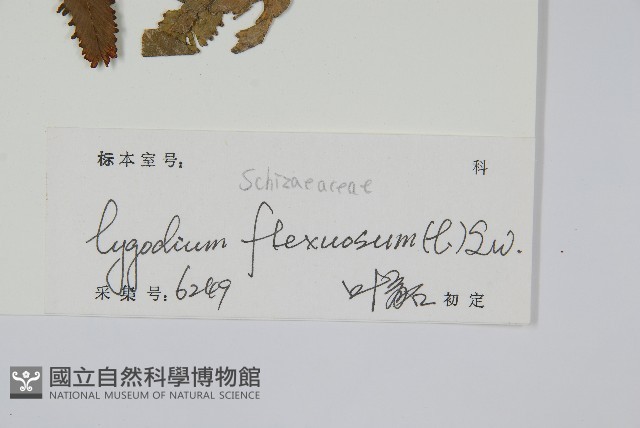 标本室号： 科
Schizaeaceae
Lygodium flexuosum (L.) Sw.
采集号：6249 叶 初定
國立自然科學博物館
NATIONAL MUSEUM OF NATURAL SCIENCE